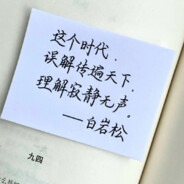 这个时代，
误解传遍天下，
理解寂静无声。
——白岩松
九四